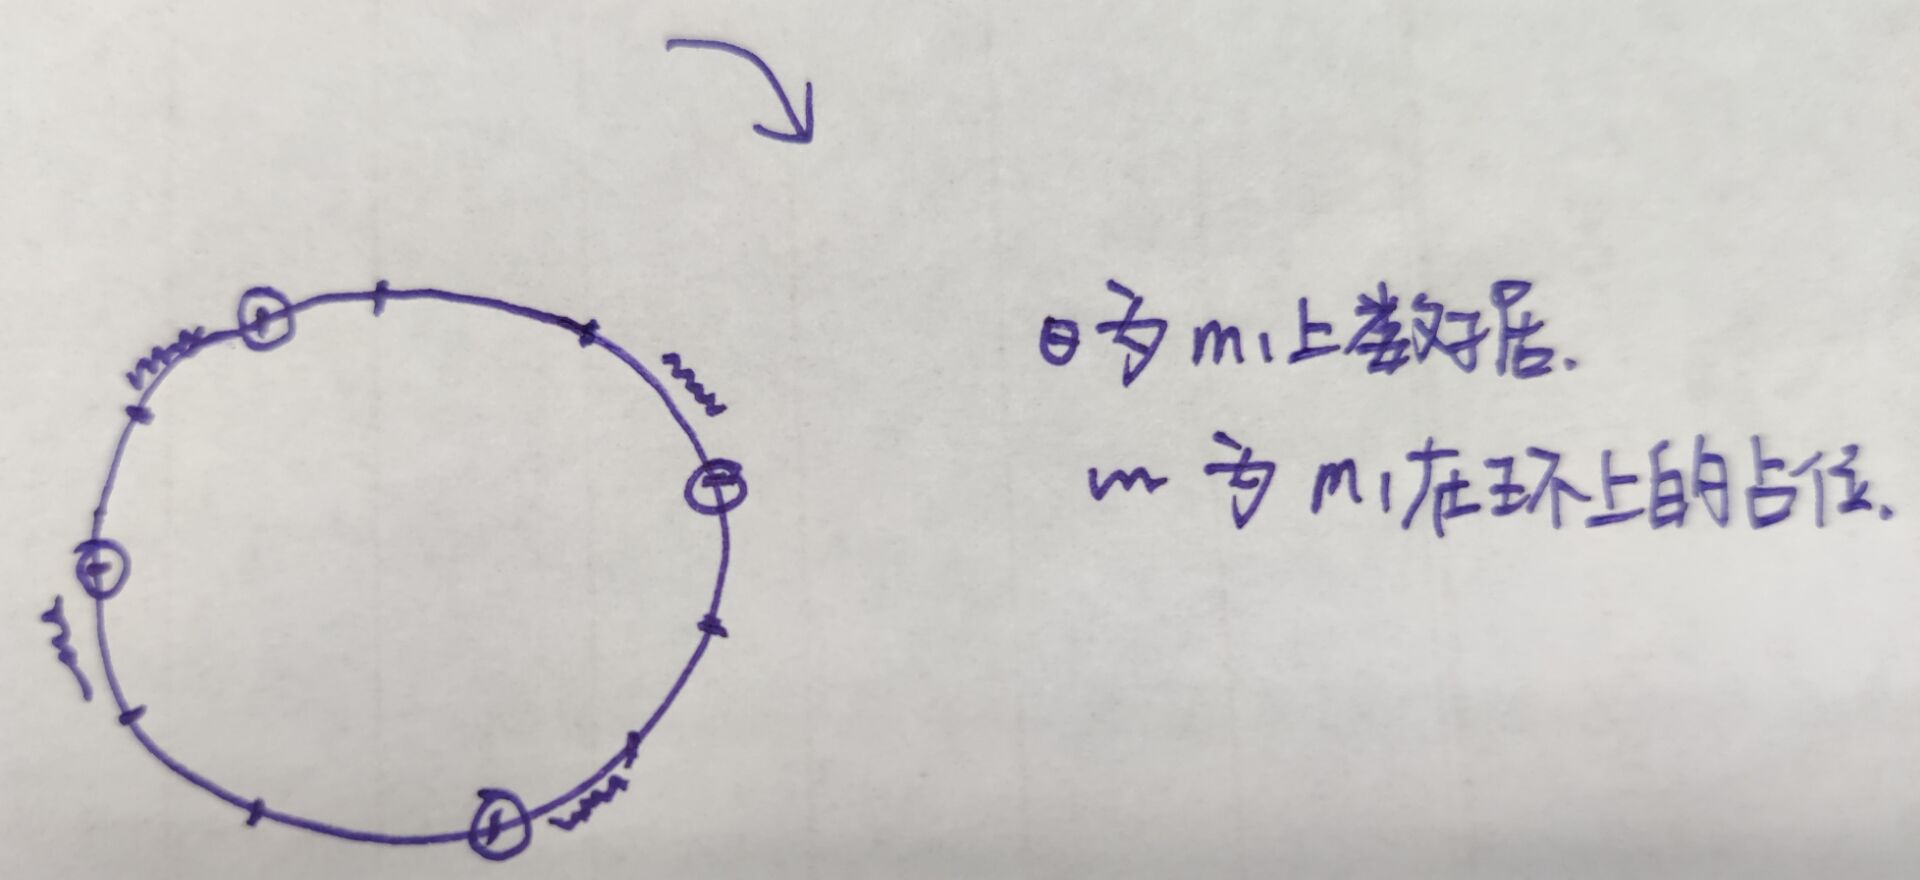 ⊖为m₁上数据.
m为m₁在环上的占位.